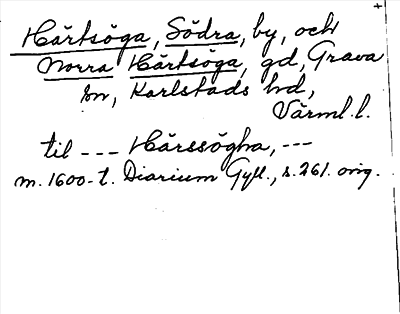 Hårtsöga, Södra, by, och
Norra Hårtsöga, gd, Grava
sn, Karlstads hd,
Värml. l.
til --- Hårssögha, ---
m. 1600-t. Diarium Gyll., s. 261. orig.